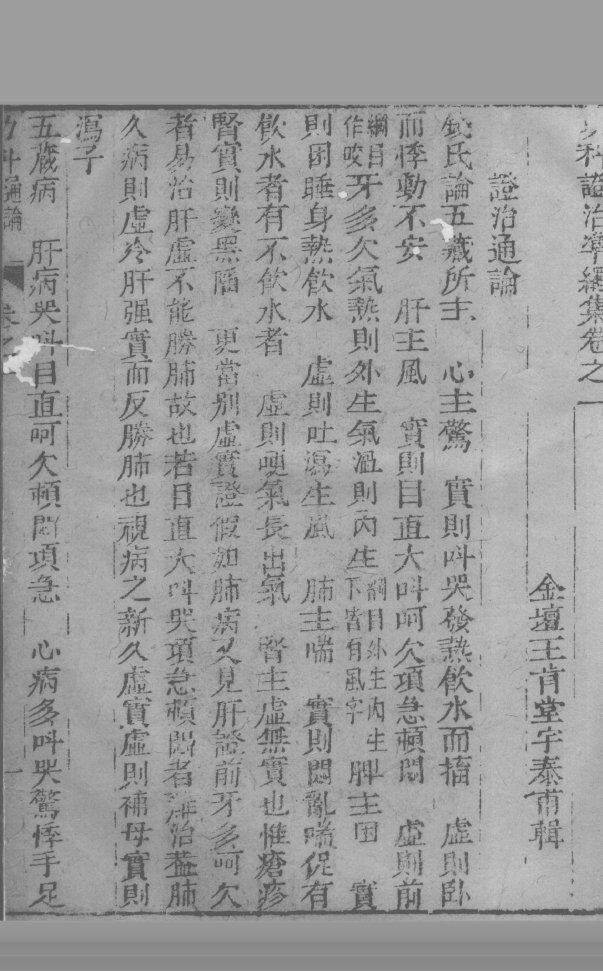 科證治準繩集卷之一
金壇王肯堂宇泰甫輯
證治通論
錢氏論五藏所主 心主驚 實則叫哭發熱飲水而搐 虛則臥
而悸動不安 肝主風 實則目直大叫呵欠項急頓悶 虛則前
綱目作咬牙多欠氣熱則外生氣溫則內生綱目外生內生下皆有風字 脾主困 實
則困睡身熱飲水 虛則吐瀉生風 肺主喘 實則悶亂喘促有
飲水者有不飲水者 虛則哽氣長出氣 腎主虛無實也惟瘡疹
腎實則變黑陷 更當別虛實證假如肺病又見肝證前牙多呵欠
者易治肝虛不能勝肺故也若目直大叫哭項急頓悶者難治蓋肺
久病則虛冷肝强實而反勝肺也視病之新久虛實虛則補母實則
瀉子
五藏病 肝病哭叫目直呵欠頓悶項急 心病多叫哭驚悸手足
幼科通論 卷之 一